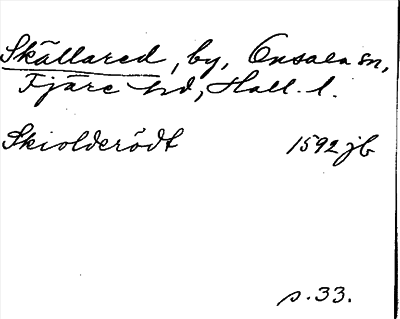 Skällared, by, Onsala sn,
Fjäre hd, Hall. l.
Skiolderödt 1592 jb
s. 33.